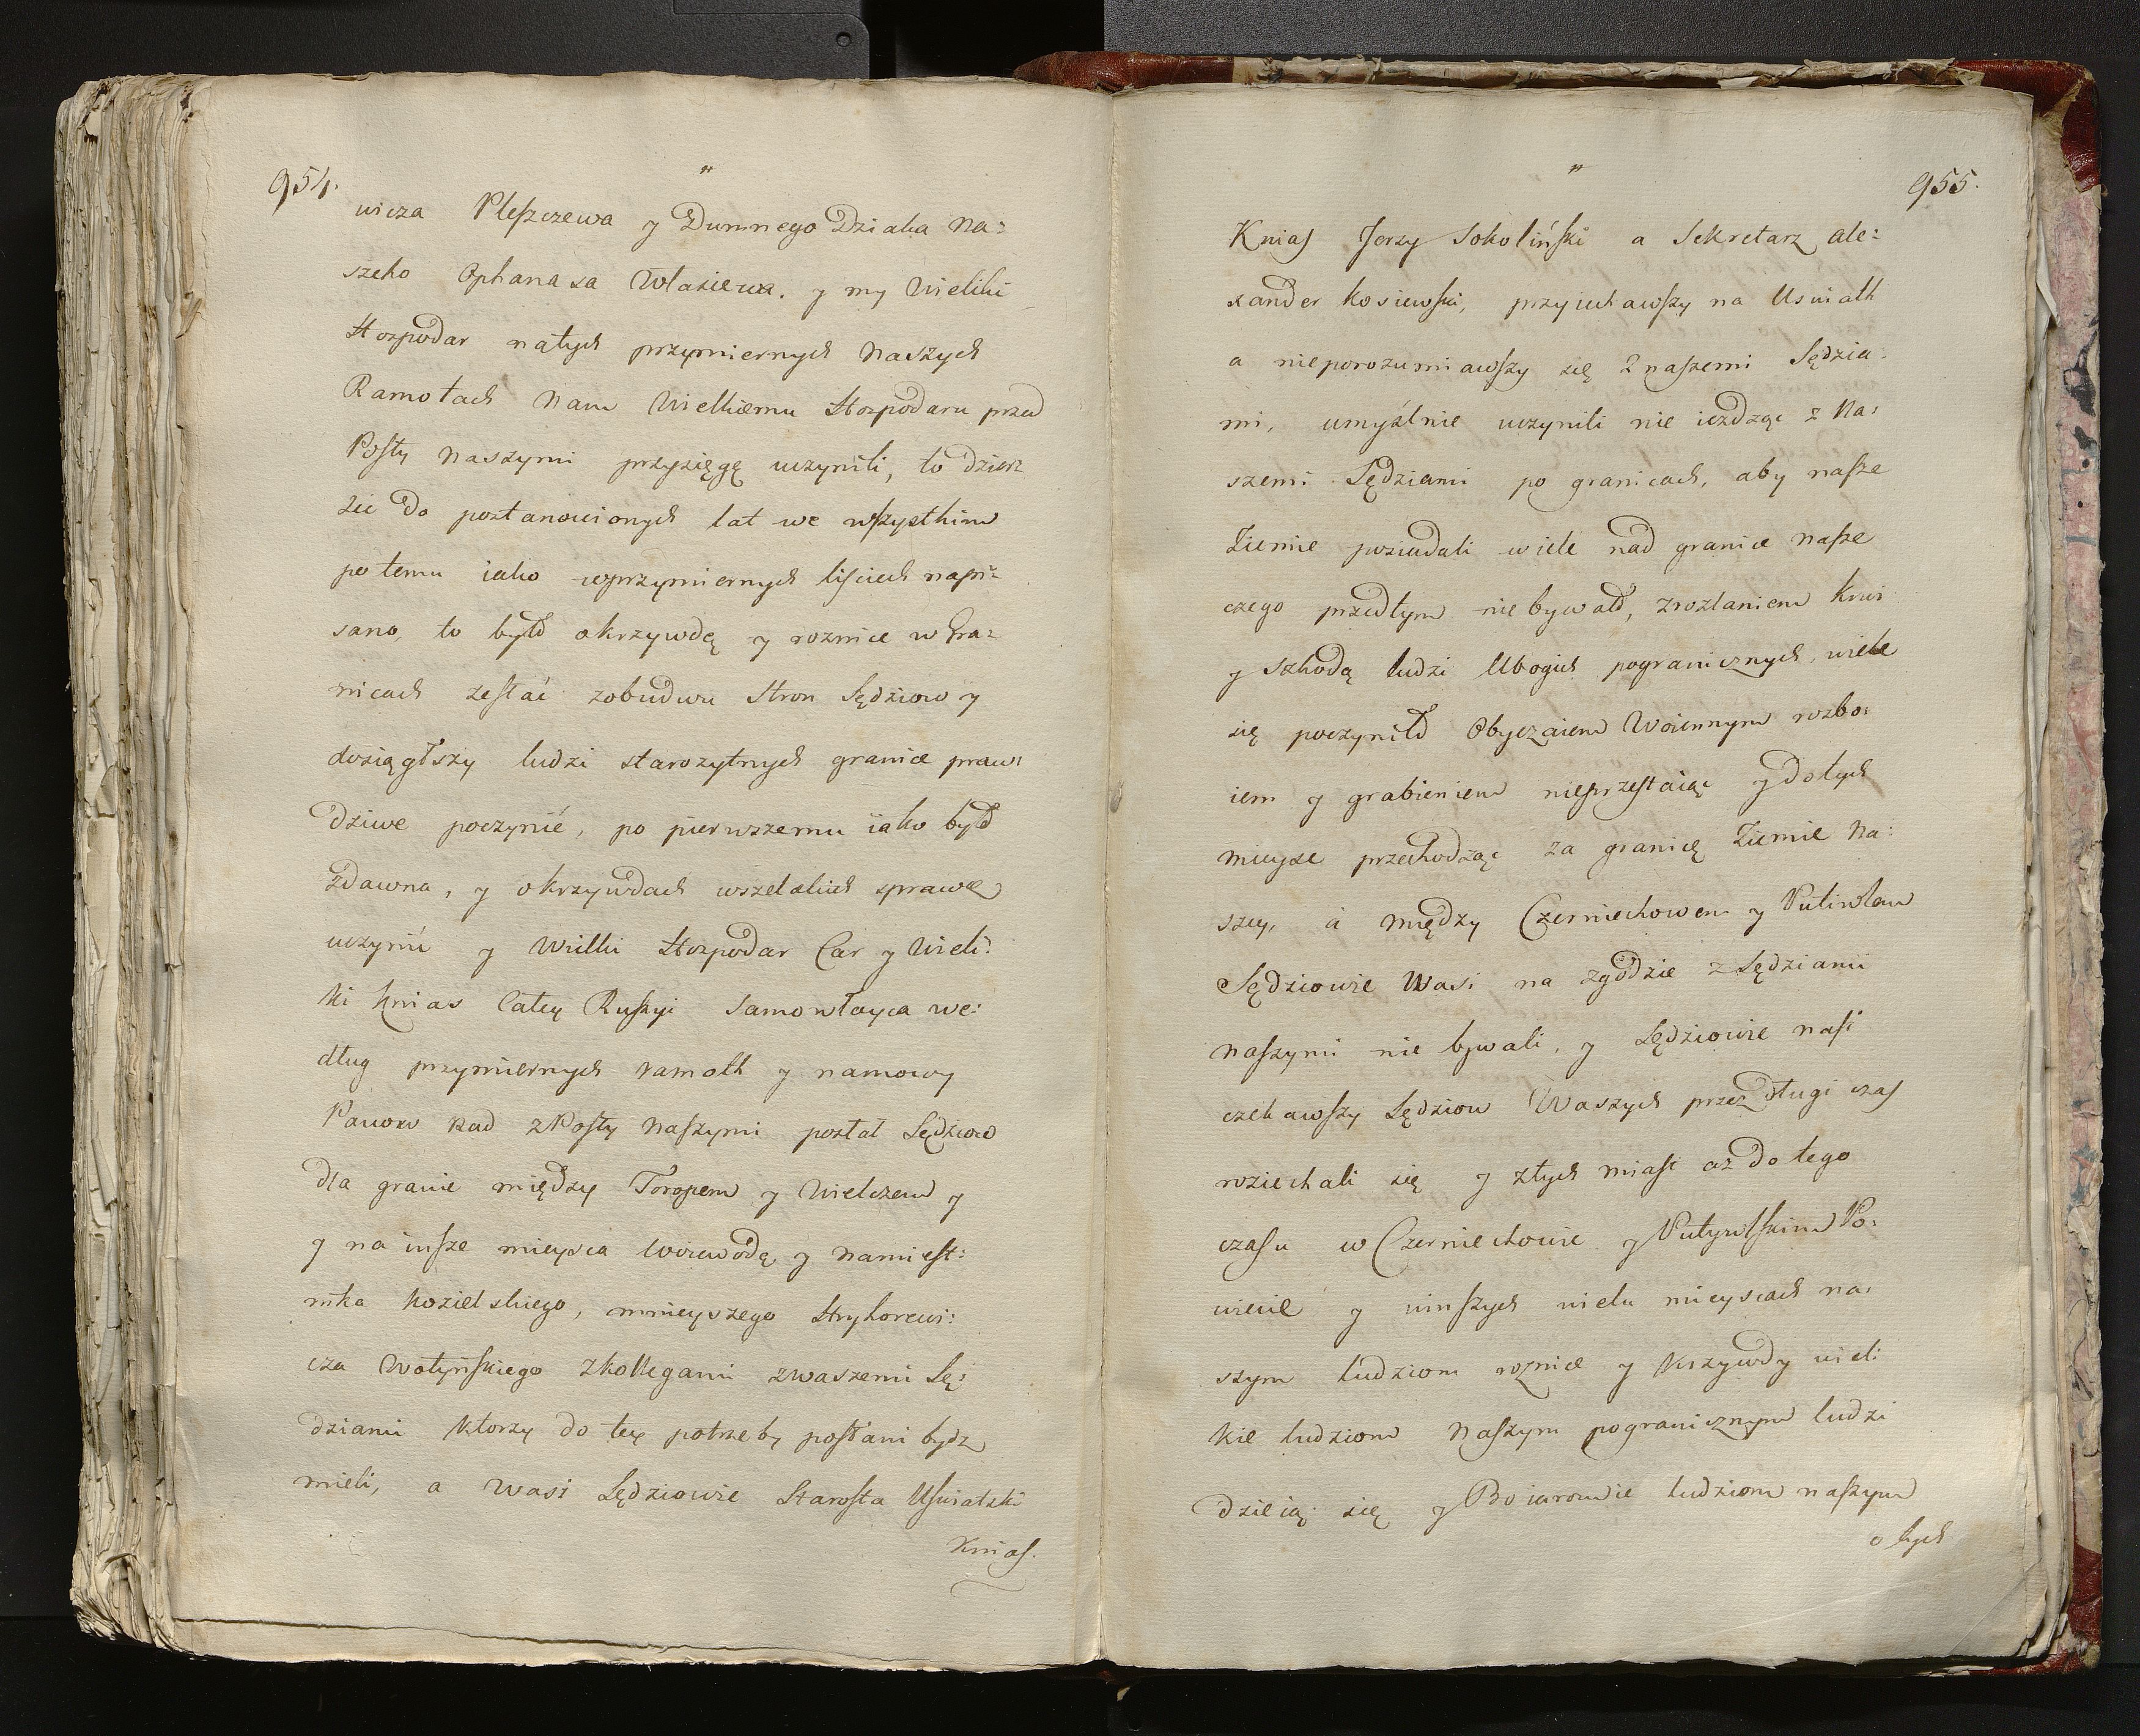 954.
wicza Pleszczewa y Dumnego Dziaka Na:
szeho Ophanasa Własiewa. y my Wieliki
Hospodar natych przymiernych Naszych
Ramotach Nam Wielkiemu Hospodaru przed
Posły Naszymi przysięgę uczynili, to dzier:
żeć do postanowionych lat we wszystkim
potemu iako wprzymiernych liściech napi:
sano, to byłd okrzywdę y roznice w Gra:
nicach zesłać zobudwu Stron Sędziow y
dosiągłszy ludzi starozytnych granice praw:
dziwe poczynić, po pierwszemu iako byłd
zdawna, y okrzywdach wszelakich sprawę
uczynić y Wielki Hospodar Car y Wieli:
ki Knias Całey Ruskyi Samowłayca we:
dług przymiernych ramoth y namowy
Panow Rad zPosły Naszymi posłał Sędziow
dla granic między Toropem y Wielczem y
y na insze mieysca Woiewodę y Namiest:
nika Kozielskiego, mnieyszego Hryhorewi:
cza Wołyńskiego zkollegami zwaszemi Sę:
dziami ktorzy do tey potrzeby posłani bydz
mieli, a Wasi Sędziowie Starosta Uświatski
Knias.
955.
Knias Jerzy Sokoliński a Sekretarz Ale:
xander Kosiewski, przyiechawszy na Uswiath
a nieporozumiawszy się z naszemi Sędzia:
mi, umyślnie uczynili nie ieżdżąc z Na:
szemi Sędziami po granicach, aby nasze
Ziemie posiadali wiele nad granice nasze
czego przedtym nie bywałd, zrozlaniem Krwi
y szkodą ludzi Ubogich pogranicznych, wiele
się poczyniłd Obyczaiem Woiennym rozbo:
iem y grabieniem nieprzestaiąc y dotych
mieysc przechodząc za granicę Ziemie Na:
szey, a między Czerniechowem y Putiwlem
Sędziowie Wasi na zgodzie zSędziami
naszymi nie bywali, y Sędziowie nasi
czekawszy Sędziow Waszych przez długi czas
roziechali się y ztych miast aż do tego
czasu w Czerniechowie y Putywlskim Po:
wiecie y winszych wielu mieyscach na:
szym ludziom roznice y Krzywdy wiel:
kie ludziom Naszym pogranicznym ludzi
dzieią się y Boiarowie ludziom naszym
o tych